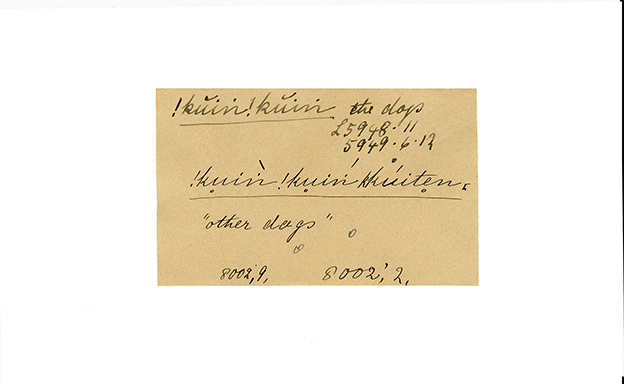 !kŭiṅ!kŭiṅ the dogs
L5948.11
5949.6.12
!ku̥iǹ !ku̥iń kkúite̥n.
"other dogs"
8002,9, 8002', 2,